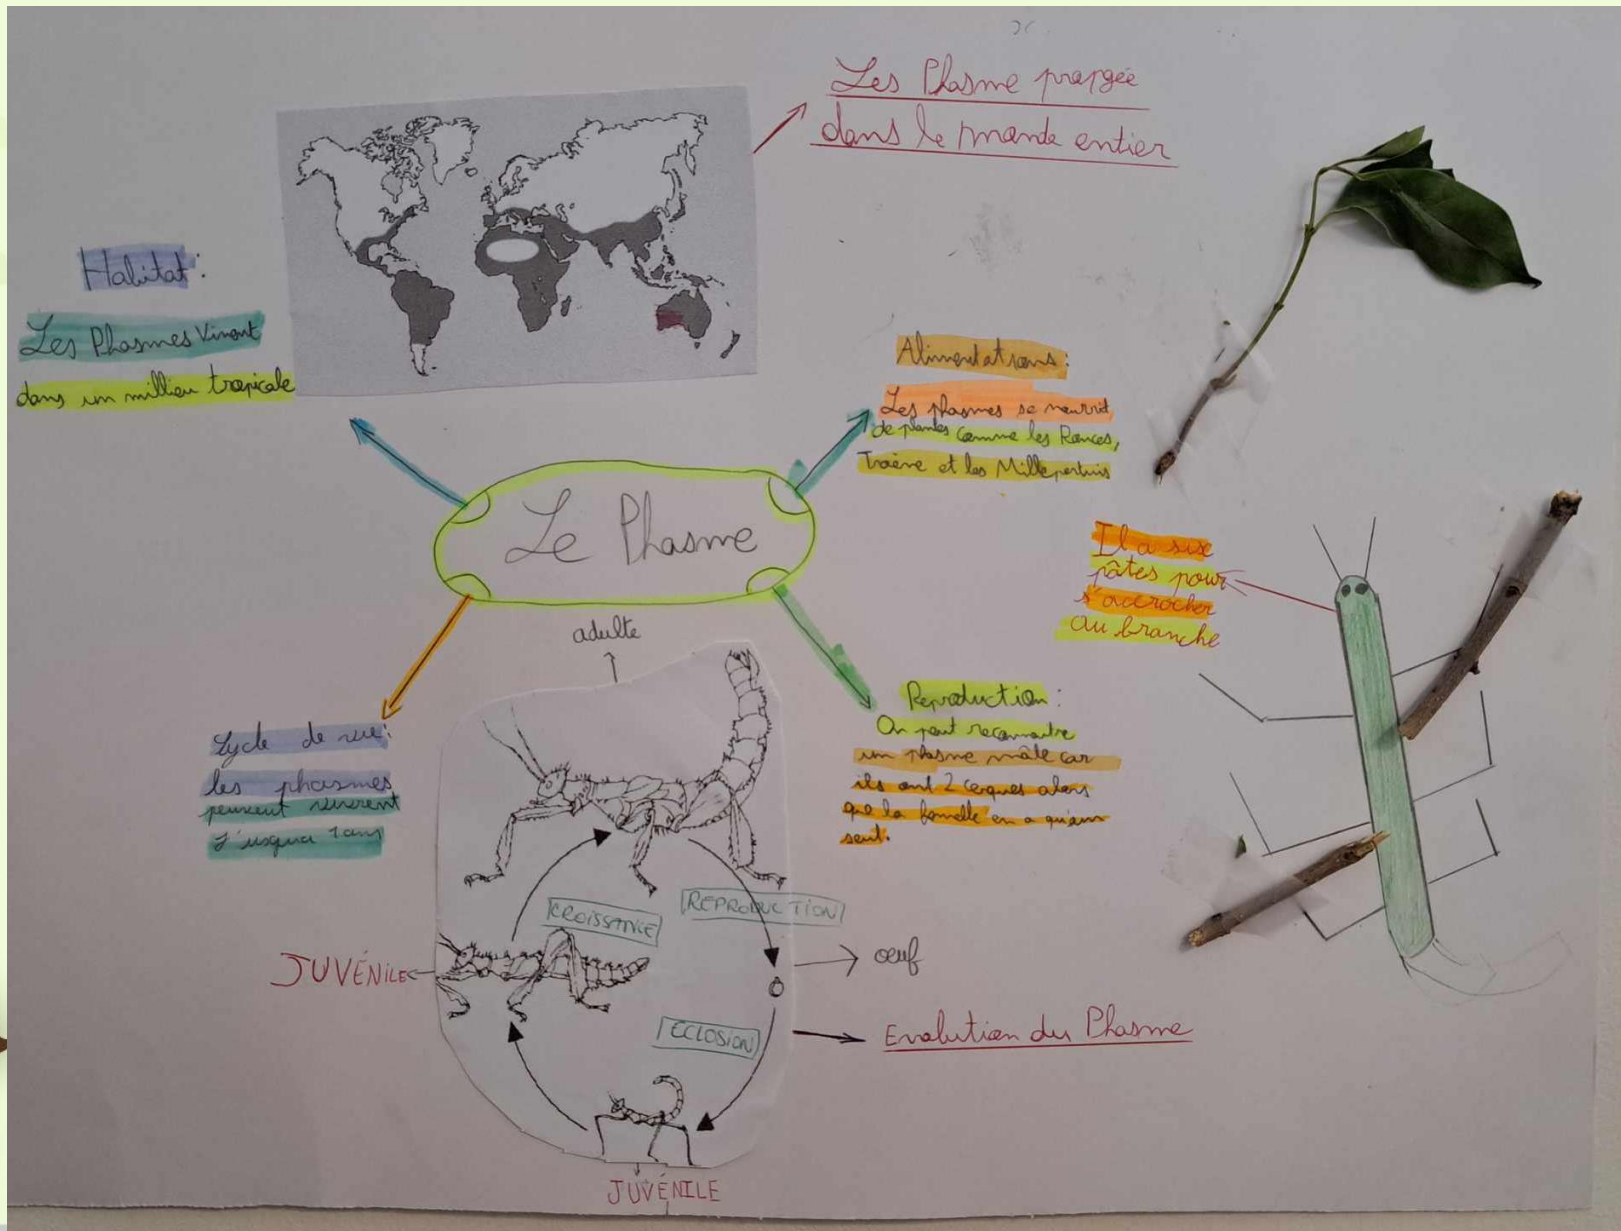 Les Phasme propgée
dans le monde entier
Habitat:
Les Phasmes Vivent
dans un millieu tropicale
Alimentations:
Les phasmes se nourrit
de plantes comme les Ronces,
Troène et les Millepertuis
Le Phasme
Il a six
pâtes pour
s'accrocher
au branche
adulte
Reproduction:
On peut reconnaitre
un phasme mâle car
ils ont 2 cerques alors
que la femelle en a qu'un
seul.
Cycle de vie:
les phasmes
peuvent vivrent
J'usqua 1 ans
CROISSANCE
REPRODUCTION
JUVÉNILE
oeuf
ECLOSION
Evolution du Phasme
JUVÉNILE